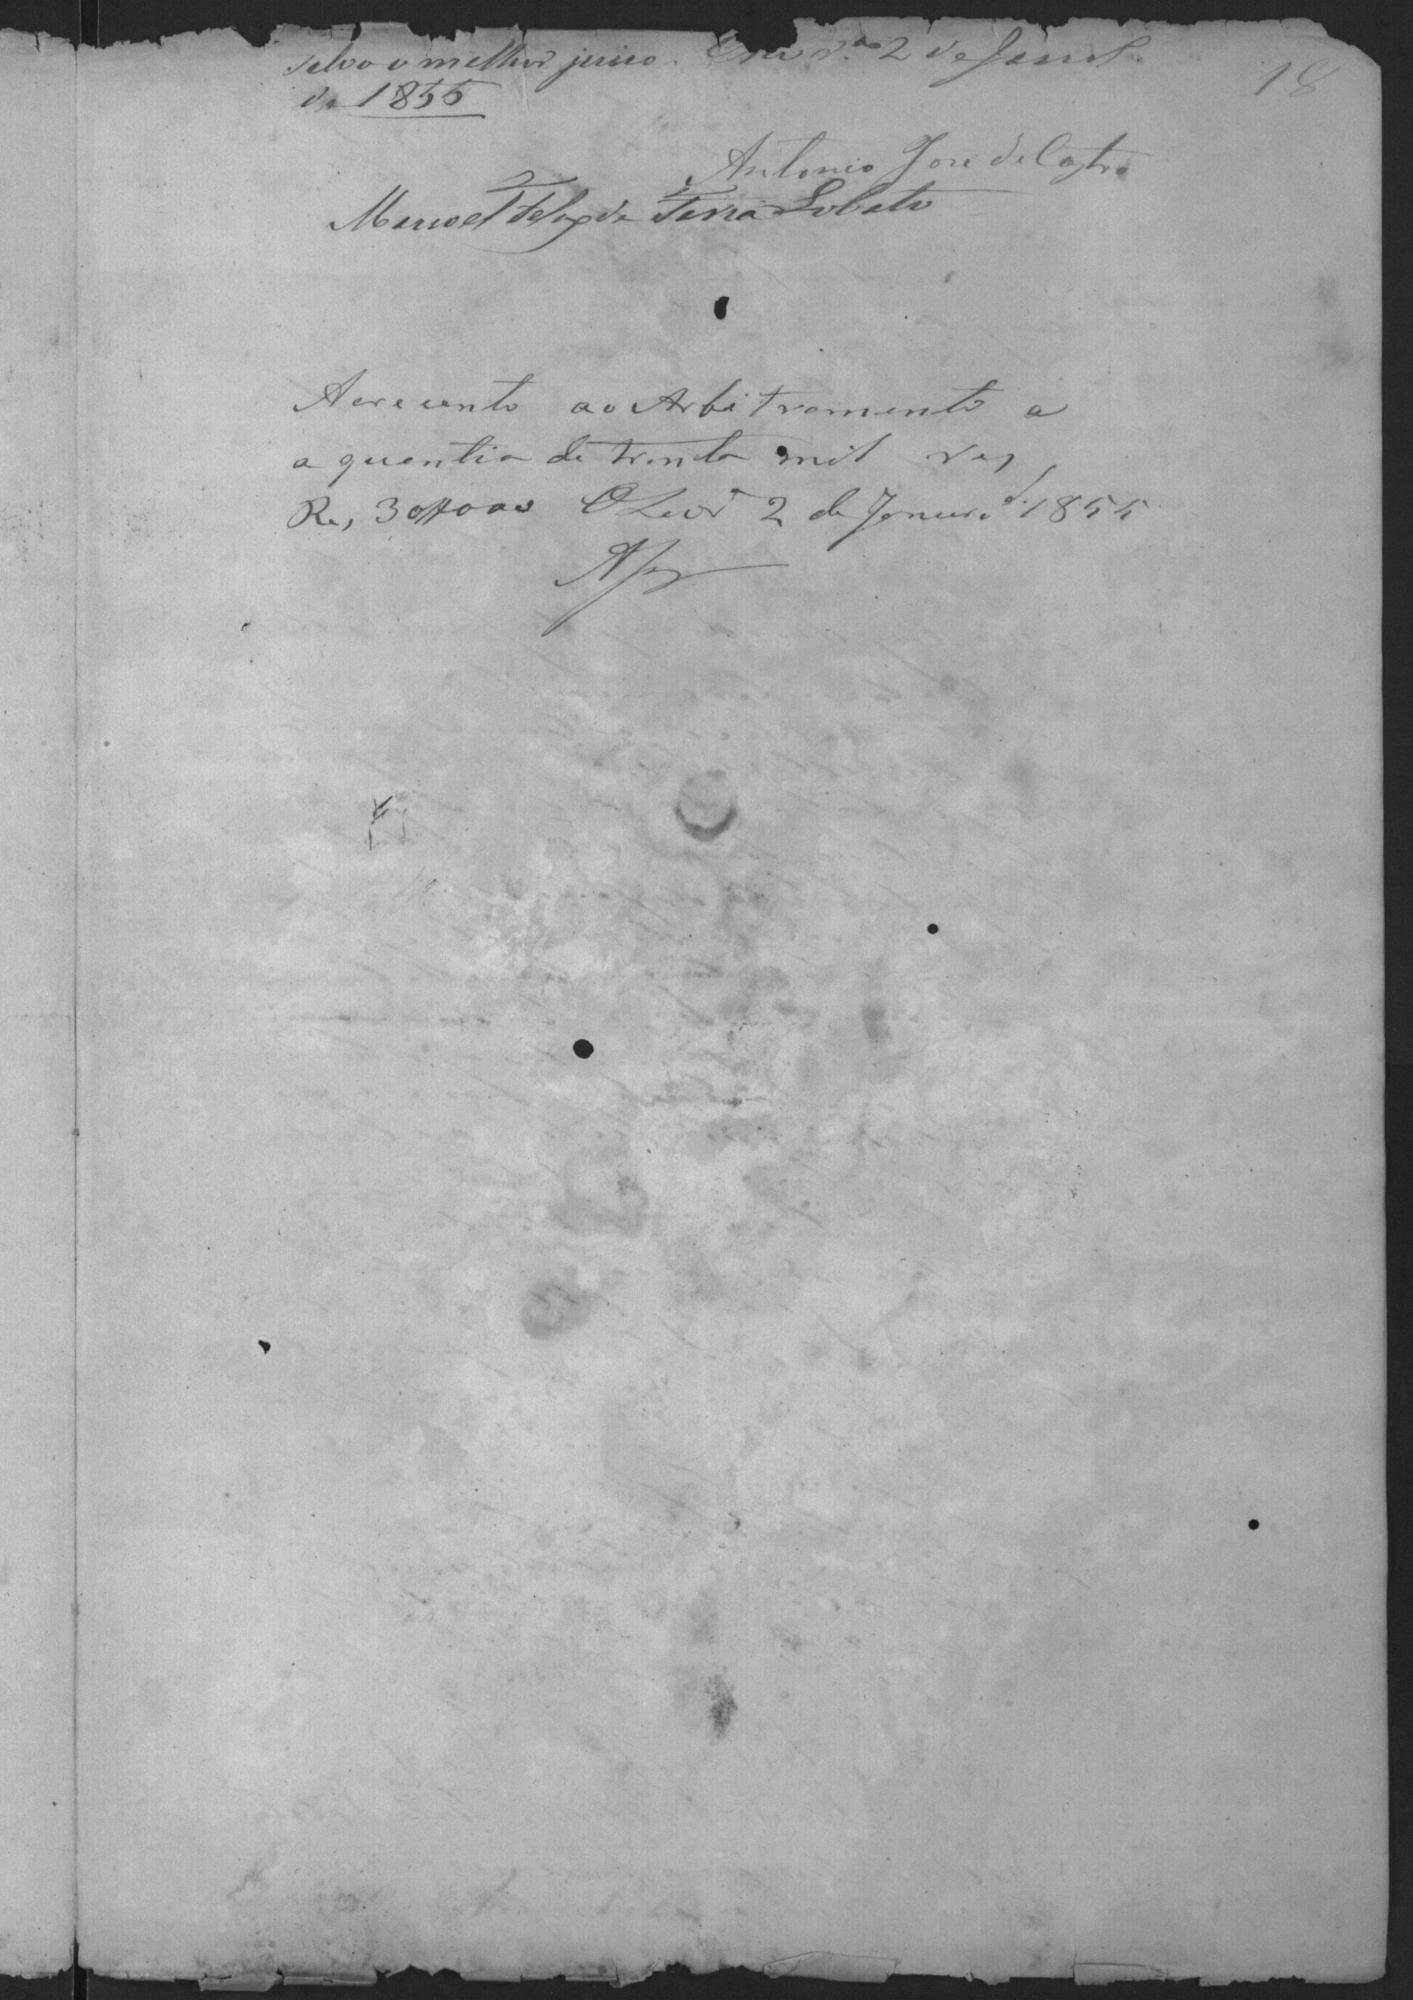 18
salvo o melhor juiso. 2 de Janr.
de 1855
Antonio Jose de Castro
Manoel Felix de Faria Lobato
Acrecento ao Arbitramento a
a quantia de trinta mil reis,
Rs, 30#000 2 de Janeiro d. 1855